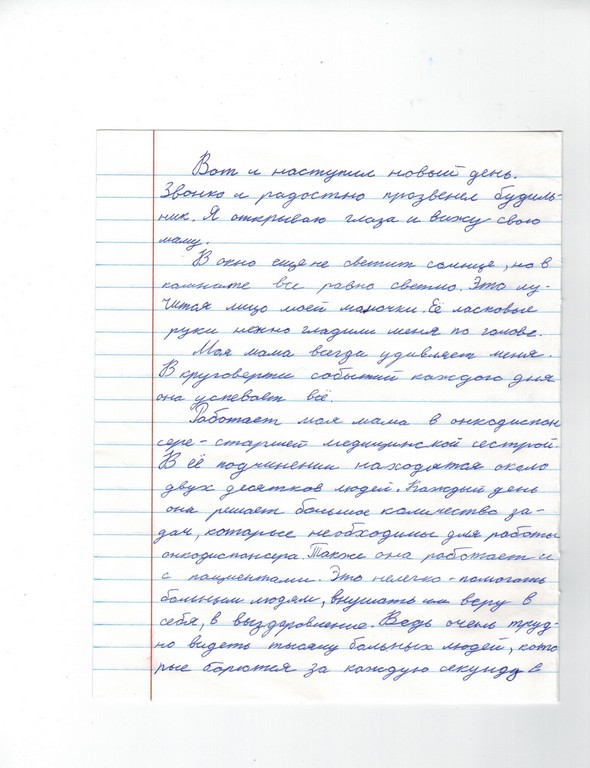 Вот и наступил новый день.
Звонко и радостно прозвенел будиль-
ник. Я открываю глаза и вижу свою
маму.
В окно еще не светит солнце, но в
комнате все равно светло. Это лу-
чится лицо моей мамочки. Её ласковые
руки нежно гладили меня по голове.
Моя мама всегда удивляет меня.
В круговерти событий каждого дня
она успевает всё.
Работает моя мама в онкодиспан
сере - старшей медицинской сестрой.
В её подчинении находятся около
двух десятков людей. Каждый день
она решает большое количество за-
дач, которые необходимы для работы
онкодиспансера. Также она работает и
с пациентами. Это нелегко - помогать
больным людям, внушать им веру в
себя, в выздоровление. Ведь очень труд-
но видеть тысячу больных людей, кото
рые борются за каждую секунду в